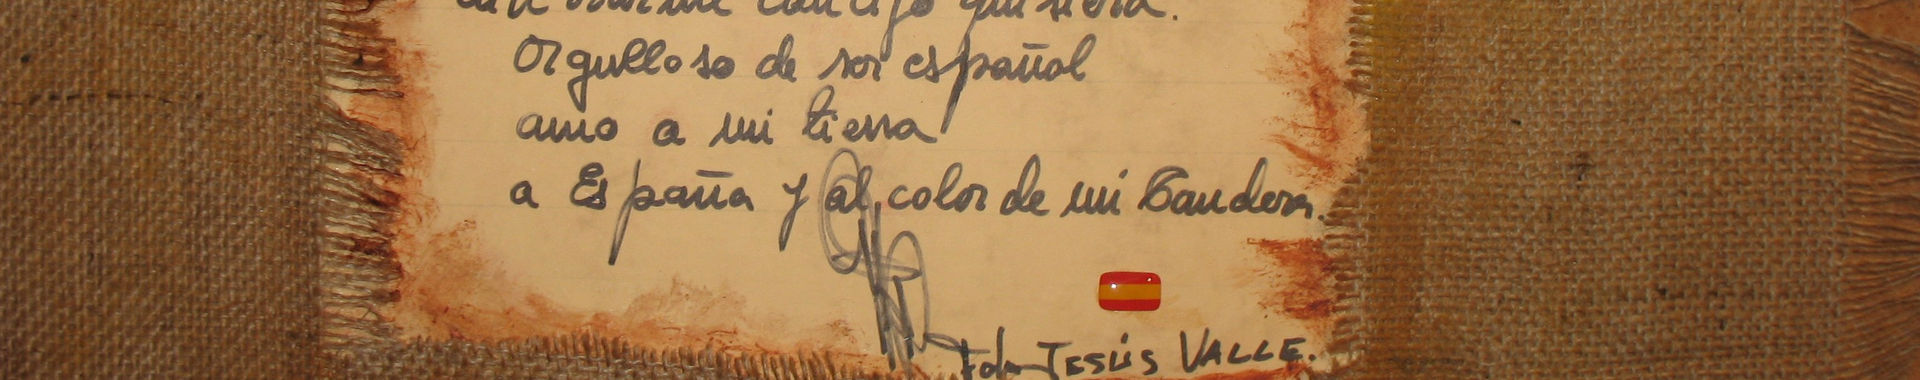 contigo quisiera.
Orgulloso de ser español
amo a mi tierra
a España y al color de mi Bandera.
Fdo JESÚS VALLE.